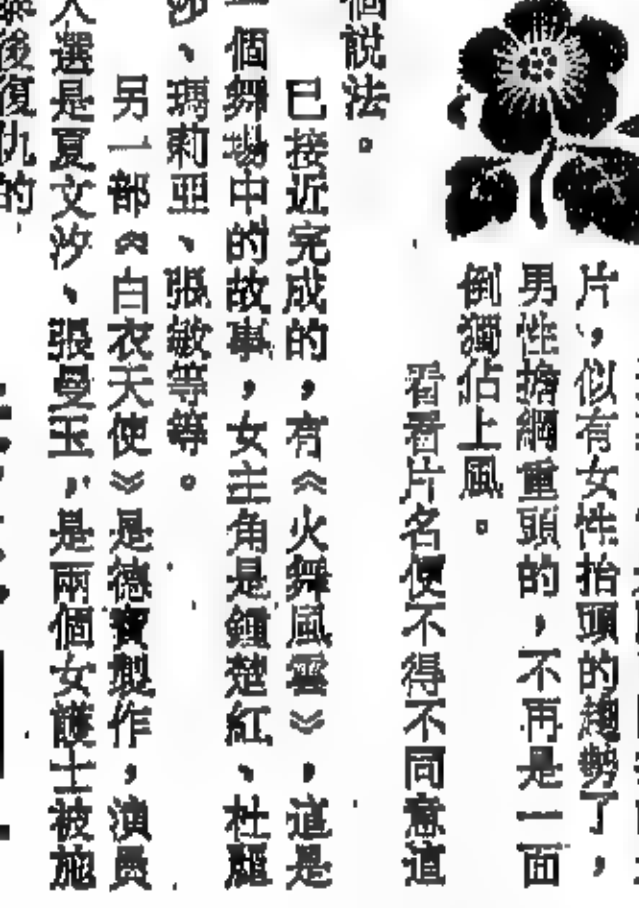 片，似有女性抬頭的趨勢了，
男性擔綱重頭的，不再是一面
倒獨佔上風。
看看片名便不得不同意這
個說法。
已接近完成的，有《火舞風雲》，這是
一個舞場中的故事，女主角是鍾楚紅、杜麗
莎、瑪莉亞、張敏等等。
另一部《白衣天使》是德寶製作，演員
人選是夏文汐、張曼玉，是兩個女護士被施
暴後復仇的